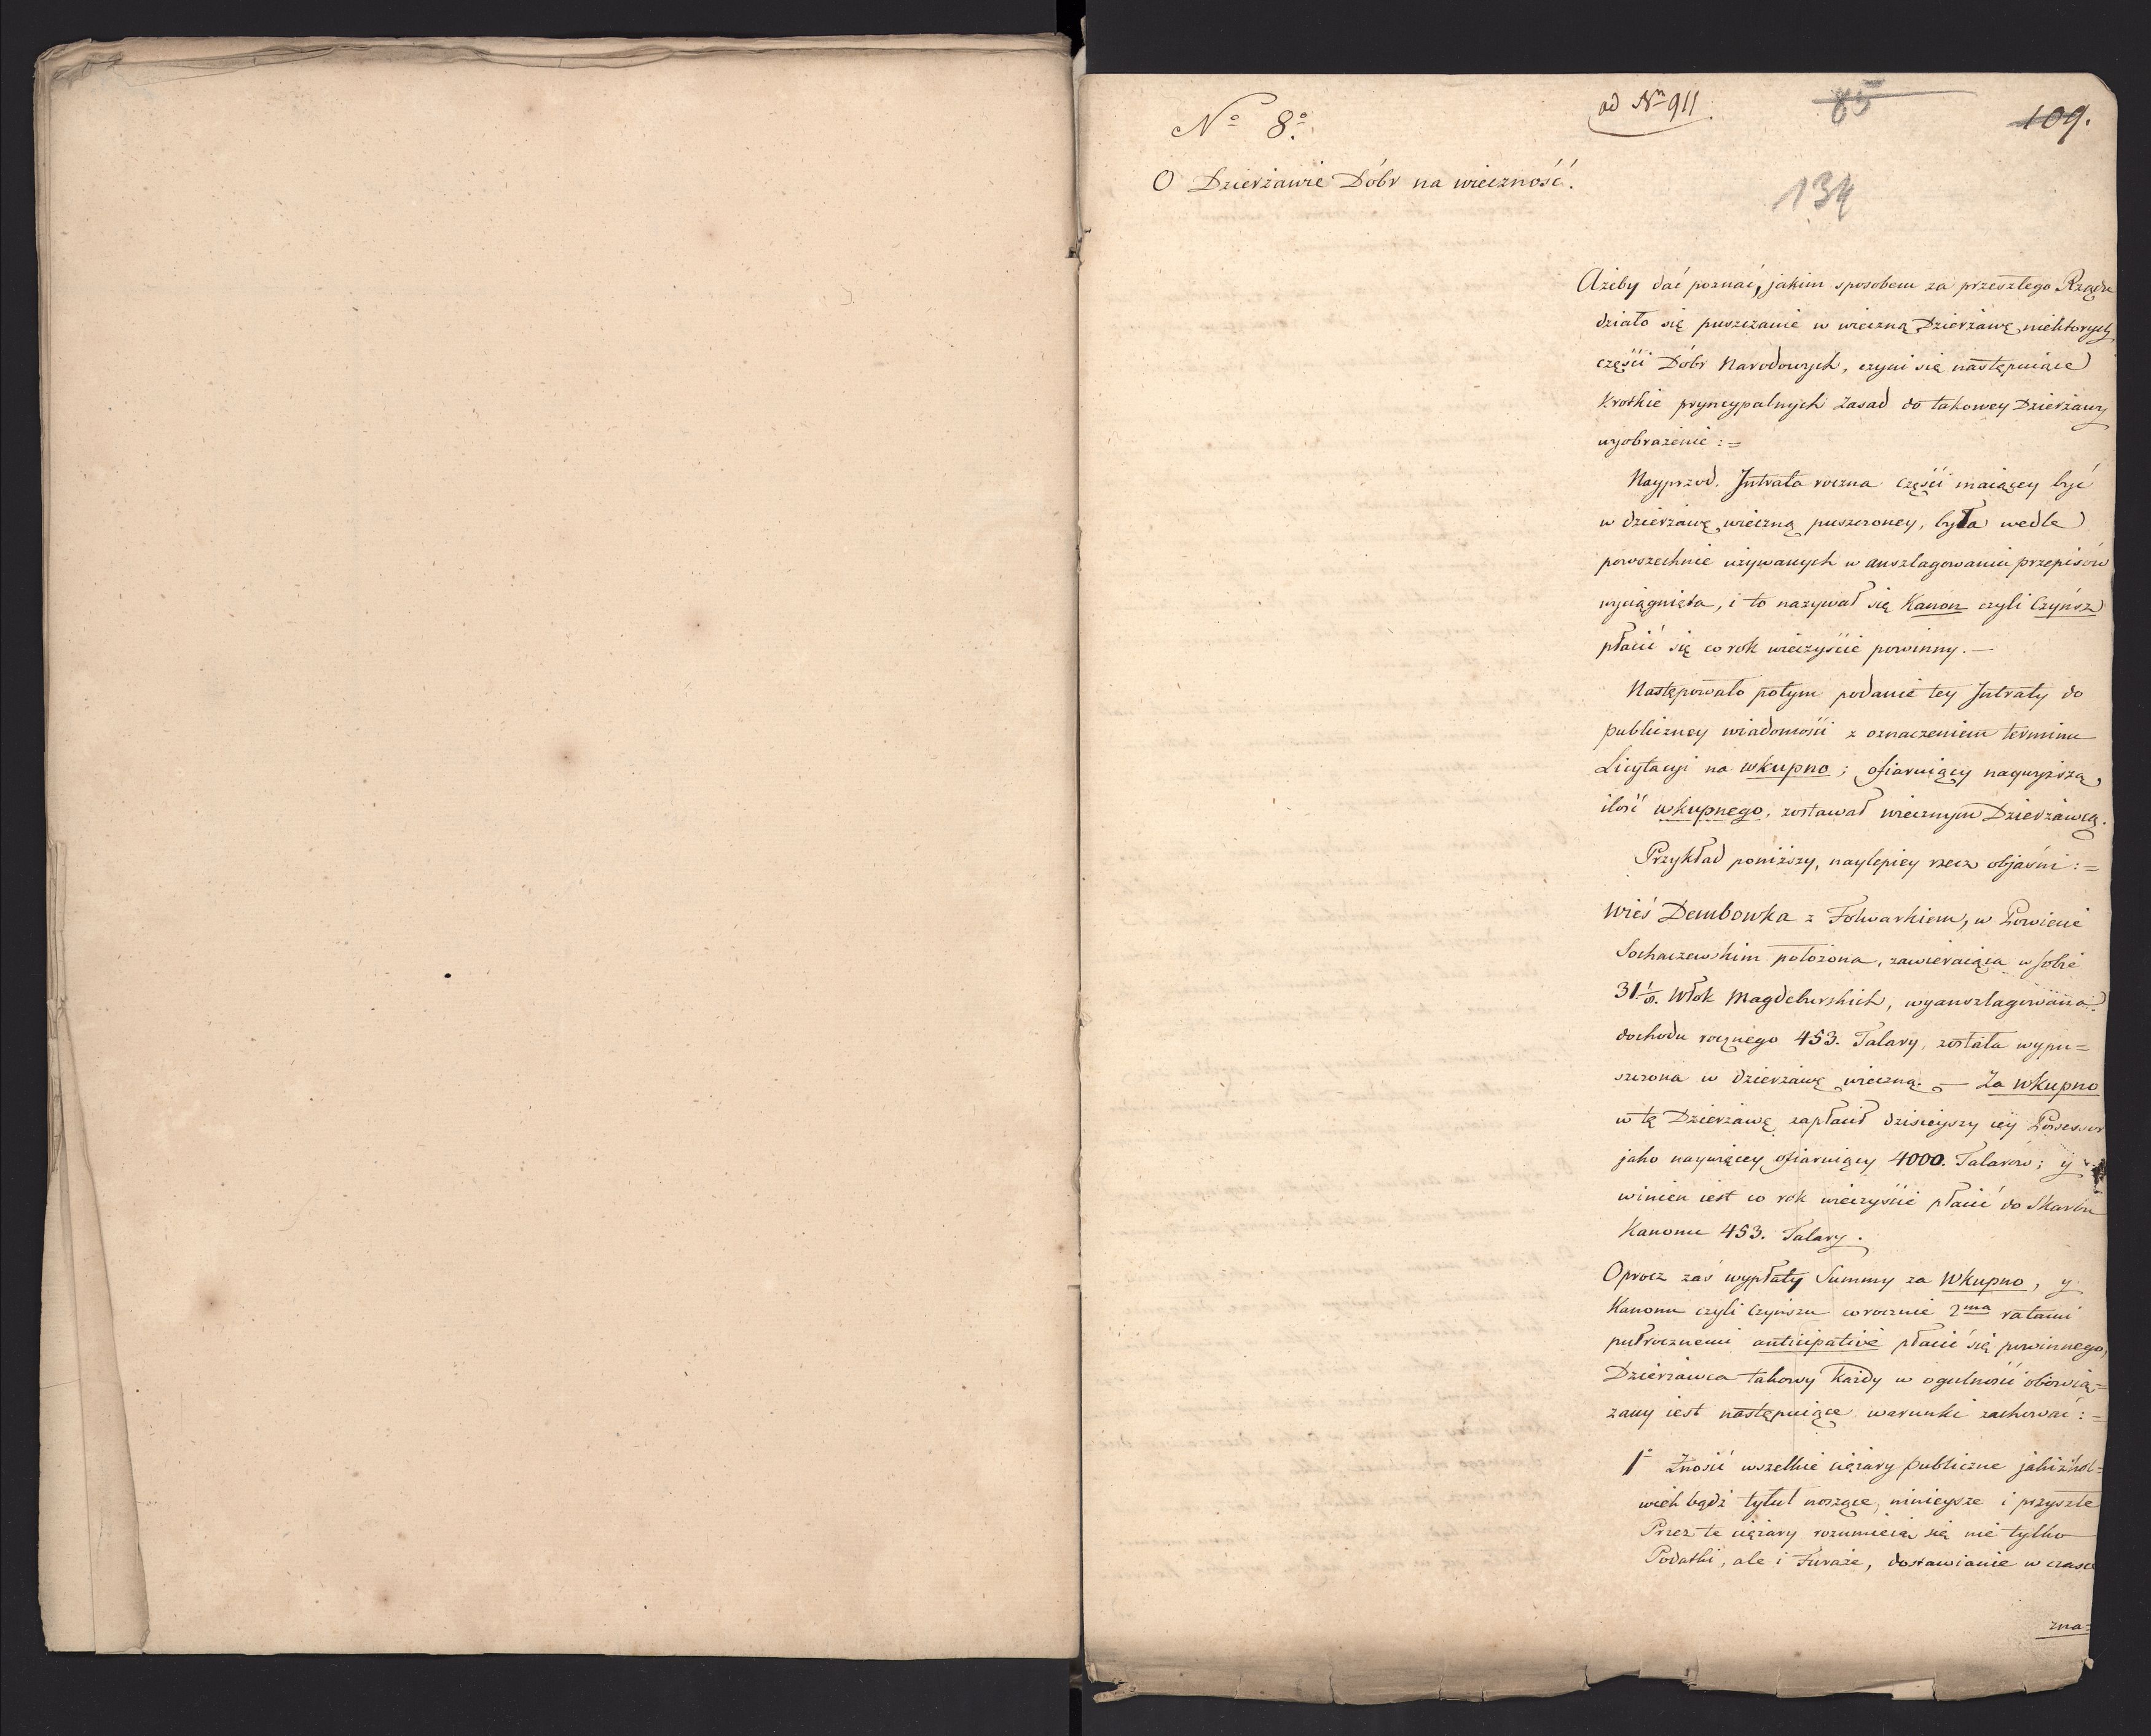 No 8o.
ad Nrn 911.
85
109.
134
O Dzierżawie Dóbr na wieczność.
Ażeby dać poznać, jakim sposobem za przeszłego Rządu
działo się puszczanie w wieczną Dzierżawę niektorych
części Dóbr Narodowych, czyni się następuiące
krotkie pryncypalnych zasad do takowey Dzierżawy
wyobrażenie :=
Nayprzod. Jntrata roczna części maiącey być
w dzierżawę wieczną puszczoney, była wedle
powszechnie używanych w anszlagowaniu przepisów
wyciągnięta, i to nazywał się Kanon czyli Czyńsz
płacić się co rok wieczyście powinny. —
Następowało potym podanie tey Jntraty do
publiczney wiadomości z oznaczeniem terminu
Licytacyi na wkupno; ofiaruiący naywyższą
ilość wkupnego, zostawał wiecznym Dzierżawcą.
Przykład poniższy, naylepiey rzecz objaśni :=
Wieś Dembowka z Folwarkiem, w Powiecie
Sochaczewskim położona, zawieraiąca w sobie
31 1/2. Włok Magdeburskich, wyanszlagowana
dochodu rocznego 453. Talary, została wypu=
szczona w dzierżawę wieczną. — Za wkupno
w tę Dzierżawę zapłacił dzisieyszy iey Possessor
jako naywięcey ofiaruiący 4000. Talarow; y
winien iest co rok wieczyście płacić do Skarbu
Kanonu 453. Talary.
Oprocz zaś wypłaty Summy za Wkupno, y
Kanonu czyli Czynszu corocznie 2ma ratami
pułrocznemi anticipative płacić się powinnego,
Dzierżawca takowy każdy w ogulności obowią=
zany iest następuiące warunki zachować :=
1o Znosić wszelkie ciężary publiczne jakiżkol=
wiek bądź tytuł noszące, ninieysze i przyszłe
Przez te ciężary rozumieią się nie tylko
Podatki, ale i Furaże, dostawianie w czasie
zna=